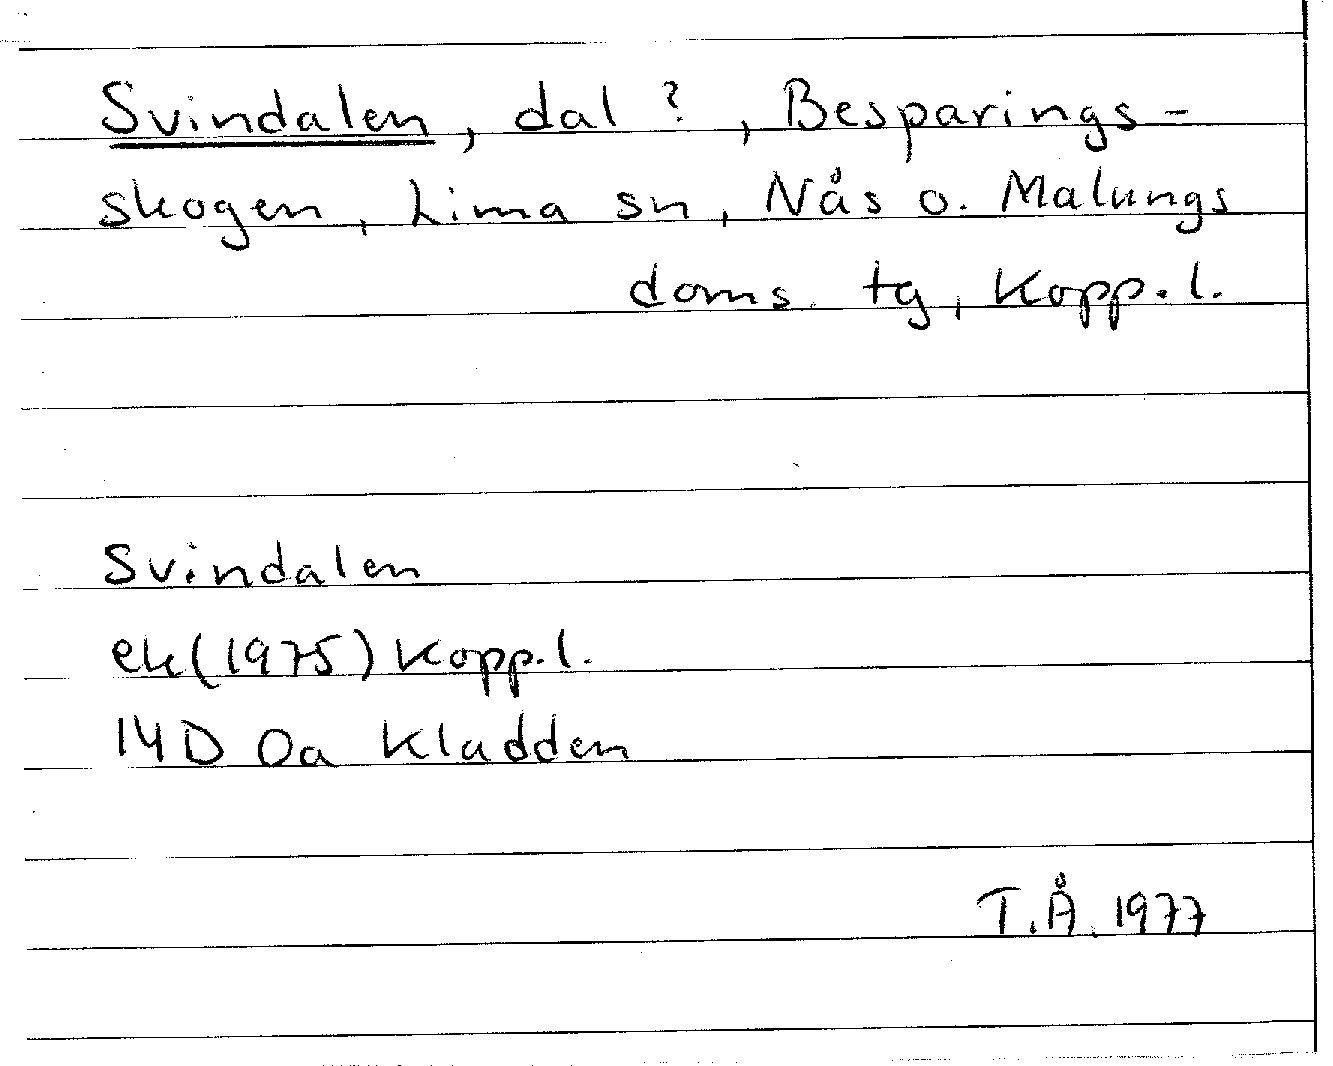 Svindalen, dal ?, Besparings-
skogen, Lima sn, Nås o. Malungs
doms. tg, Kopp. l.
Svindalen
ek(1975) Kopp. l.
14D 0a Kladden
T.Å. 1977